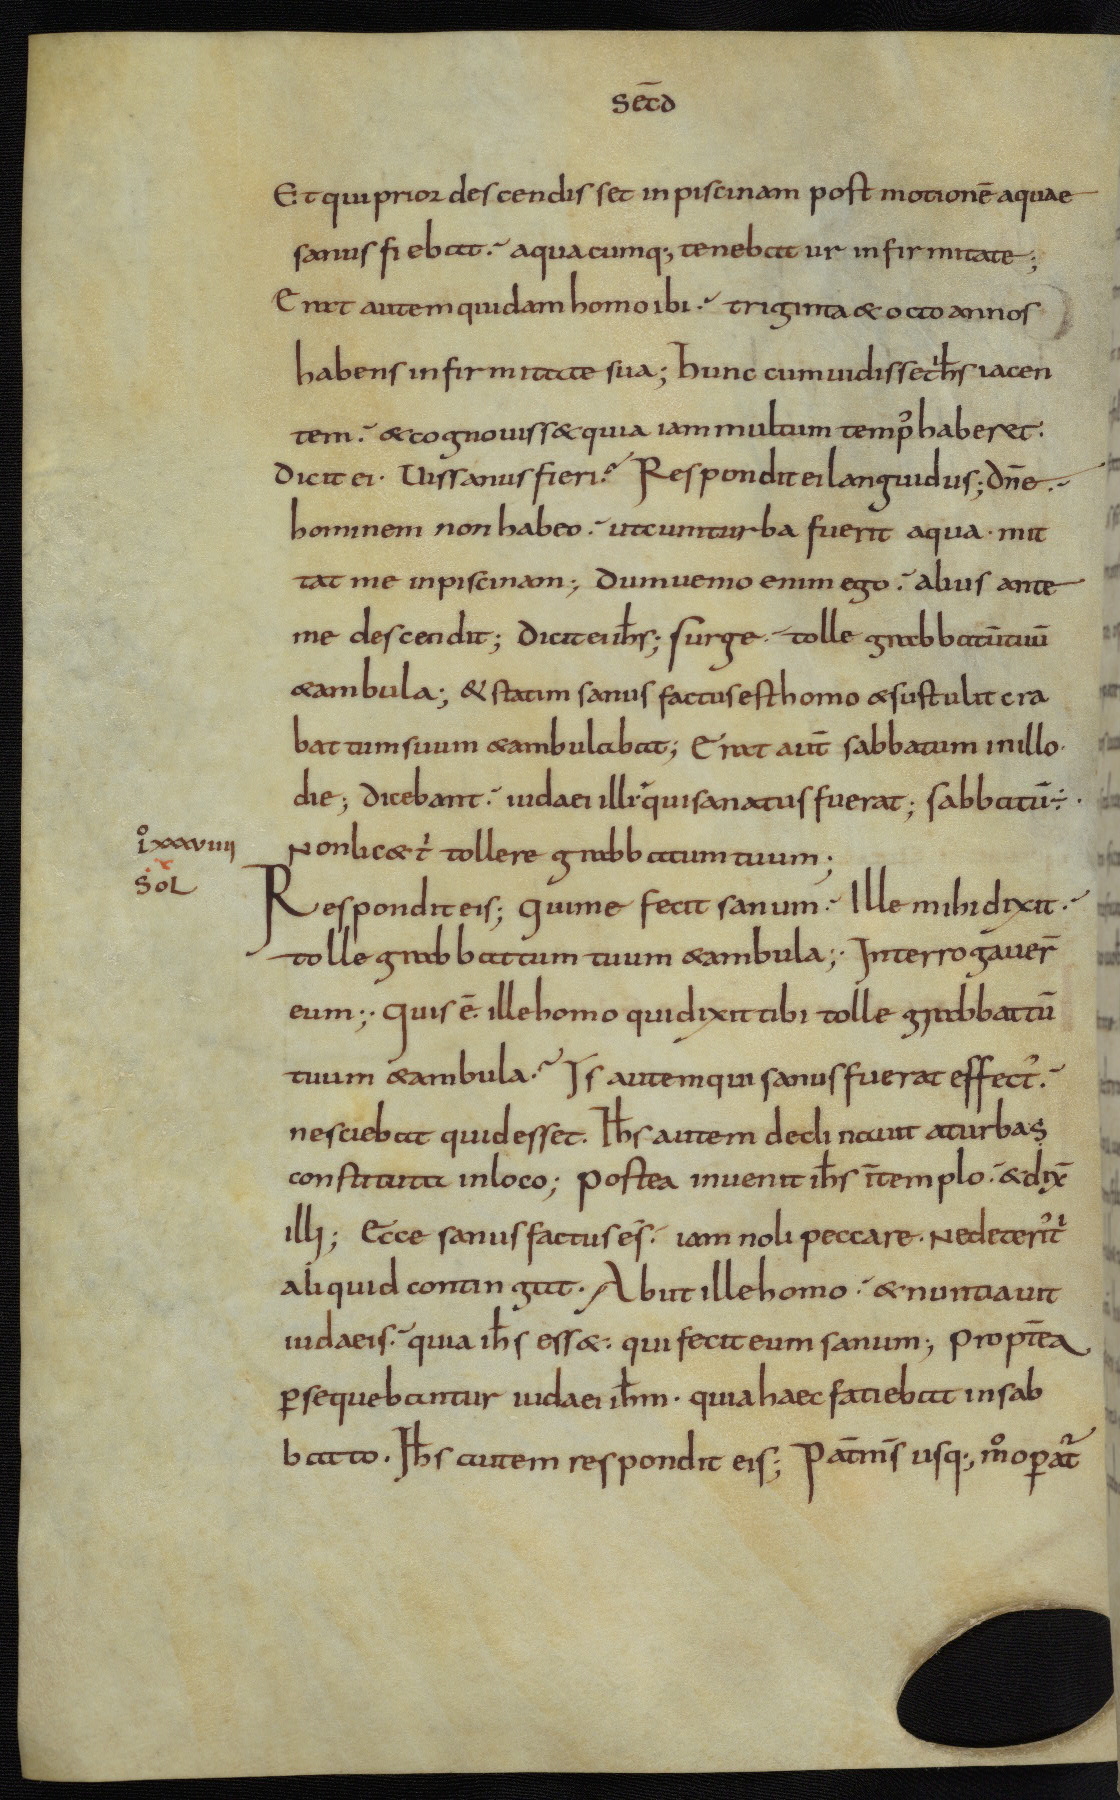 SEC̄D
Et qui prior descendisset inpiscinam post motionē aquae
sanus fiebat. aquacumq; tenebatur infirmitate;
Erat autem quidam homo ibi. triginta & octo annos
habens infirmitate sua; hunc cumuidisset ih̄s iacen
tem. & cognouiss& quia iam multum temp᾽ haberet.
dicit ei. Uis sanus fieri? Respondit ei languidus; dn̄e.
hominem non habeo. utcumturba fuerit aqua. mit
tat me inpiscinam; dumuenio enim ego. alius ante
me descendit; dicit ei ih̄s; surge. tolle grabbatū tuū
&ambula; & statim sanus factus est homo &sustulit cra
battum suum &ambulabat; Erat aut̄ sabbatum inillo
die; dicebant. iudaei illi quisanatus fuerat; sabbatū ÷.
Non lic& t᷏ tollere grabbatum tuum;
i̊xxxviiii
Sol
x
Respondit eis; quime fecit sanum. Ille mihi dixit.
tolle grabbattum tuum &ambula; Interrogauer̄
eum; quis ē. ille homo qui dixit tibi tolle grabbattū
tuum &ambula? Is autem qui sanus fuerat effect᾽.
nesciebat quid esset. Ih̄s autem declinauit aturbas
constituta inloco; postea inuenit ih̄s īntemplo. & dix̄
illi; Ecce sanus factus es. iam noli peccare. Ne deteri᾽ t᷏
aliquid contingat. Abiit ille homo. & nuntiauit
iudaeis. quia ih̄s ess&. qui fecit eum sanum; propt̄ea
p̱sequebantur iudaei ih̄m. quia haec fatiebat insab
batto. Ih̄s autem respondit eis; Pat̄ m̄s usq; m̊ op̱at᷑